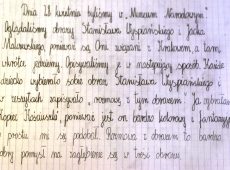 Dnia 28 kwietnia byliśmy w „Muzeum Narodowym”
Oglądaliśmy obrazy Stanisława Wyspiańskiego i Jacka
Malczewskiego, ponieważ są Oni związani z Krakowem, a tam
jedziemy. Opisywaliśmy je w następujący sposób. Każde
dziecko wybierało sobie obraz Stanisława Wyspiańskiego i
w zeszytach zapisywało „rozmowę z tym obrazem”. Ja wybrałam
Kopiec Kościuszki, ponieważ jest on bardzo kolorowy i fantazyjny
po prostu mi się podobał. Rozmowa z obrazem to bardzo
pomysł na zagłębienie się w treści obrazu.